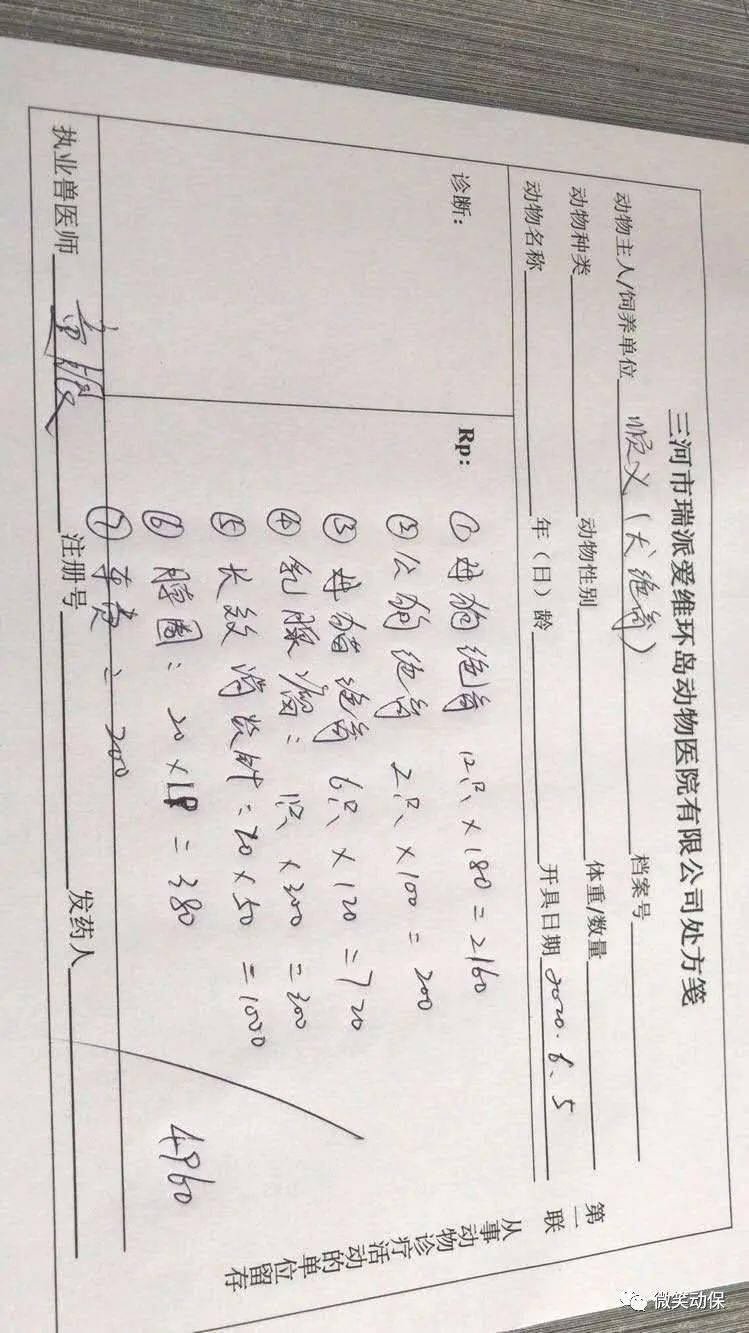 三河市瑞派爱维环岛动物医院有限公司处方笺
动物主人/饲养单位 顺义(大绝育) 档案号
动物种类 动物性别 体重/数量
动物名称 年(日)龄 开具日期 2020.6.5
诊断:
Rp:
① 母狗绝育 12只 × 180 = 2160
② 公狗绝育 2只 × 100 = 200
③ 母猫绝育 6只 × 120 = 720
④ 乳腺瘤: 1只 × 300 = 300
⑤ 长效消炎针: 20 × 50 = 1000
⑥ 脖圈: 20 × = 380
⑦ 车费: 200
4960
执业兽医师 注册号 发药人
第一联
从事动物诊疗活动的单位留存
微笑动保